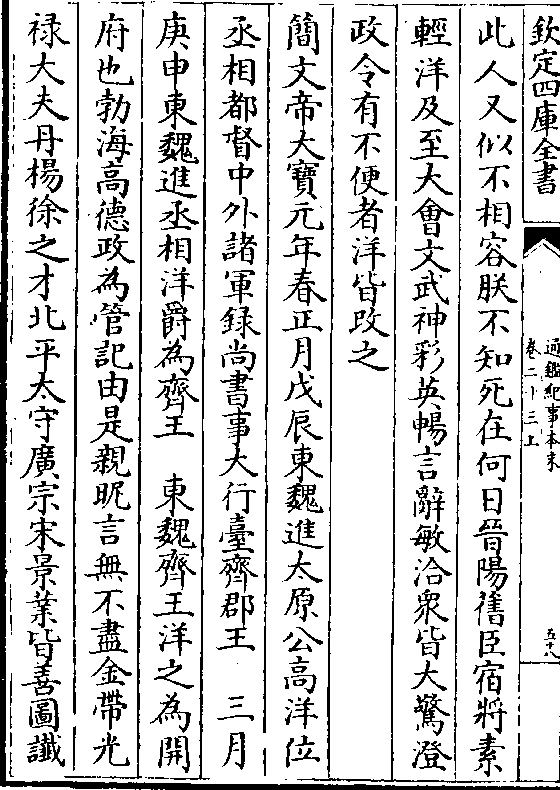 欽定四庫全書
通鑑紀事本末
卷二十三上
五十八
此人又似不相容朕不知死在何日晉陽舊臣宿將素
輕洋及至大會文武神彩英暢言辭敏洽衆皆大驚澄
政令有不便者洋皆改之
簡文帝大寶元年春正月戊辰東魏進太原公高洋位
丞相都督中外諸軍録尚書事大行臺齊郡王　三月
庚申東魏進丞相洋爵為齊王　東魏齊王洋之為開
府也勃海高德政為管記由是親昵言無不盡金帶光
禄大夫丹楊徐之才北平太守廣宗宋景業皆善圖讖